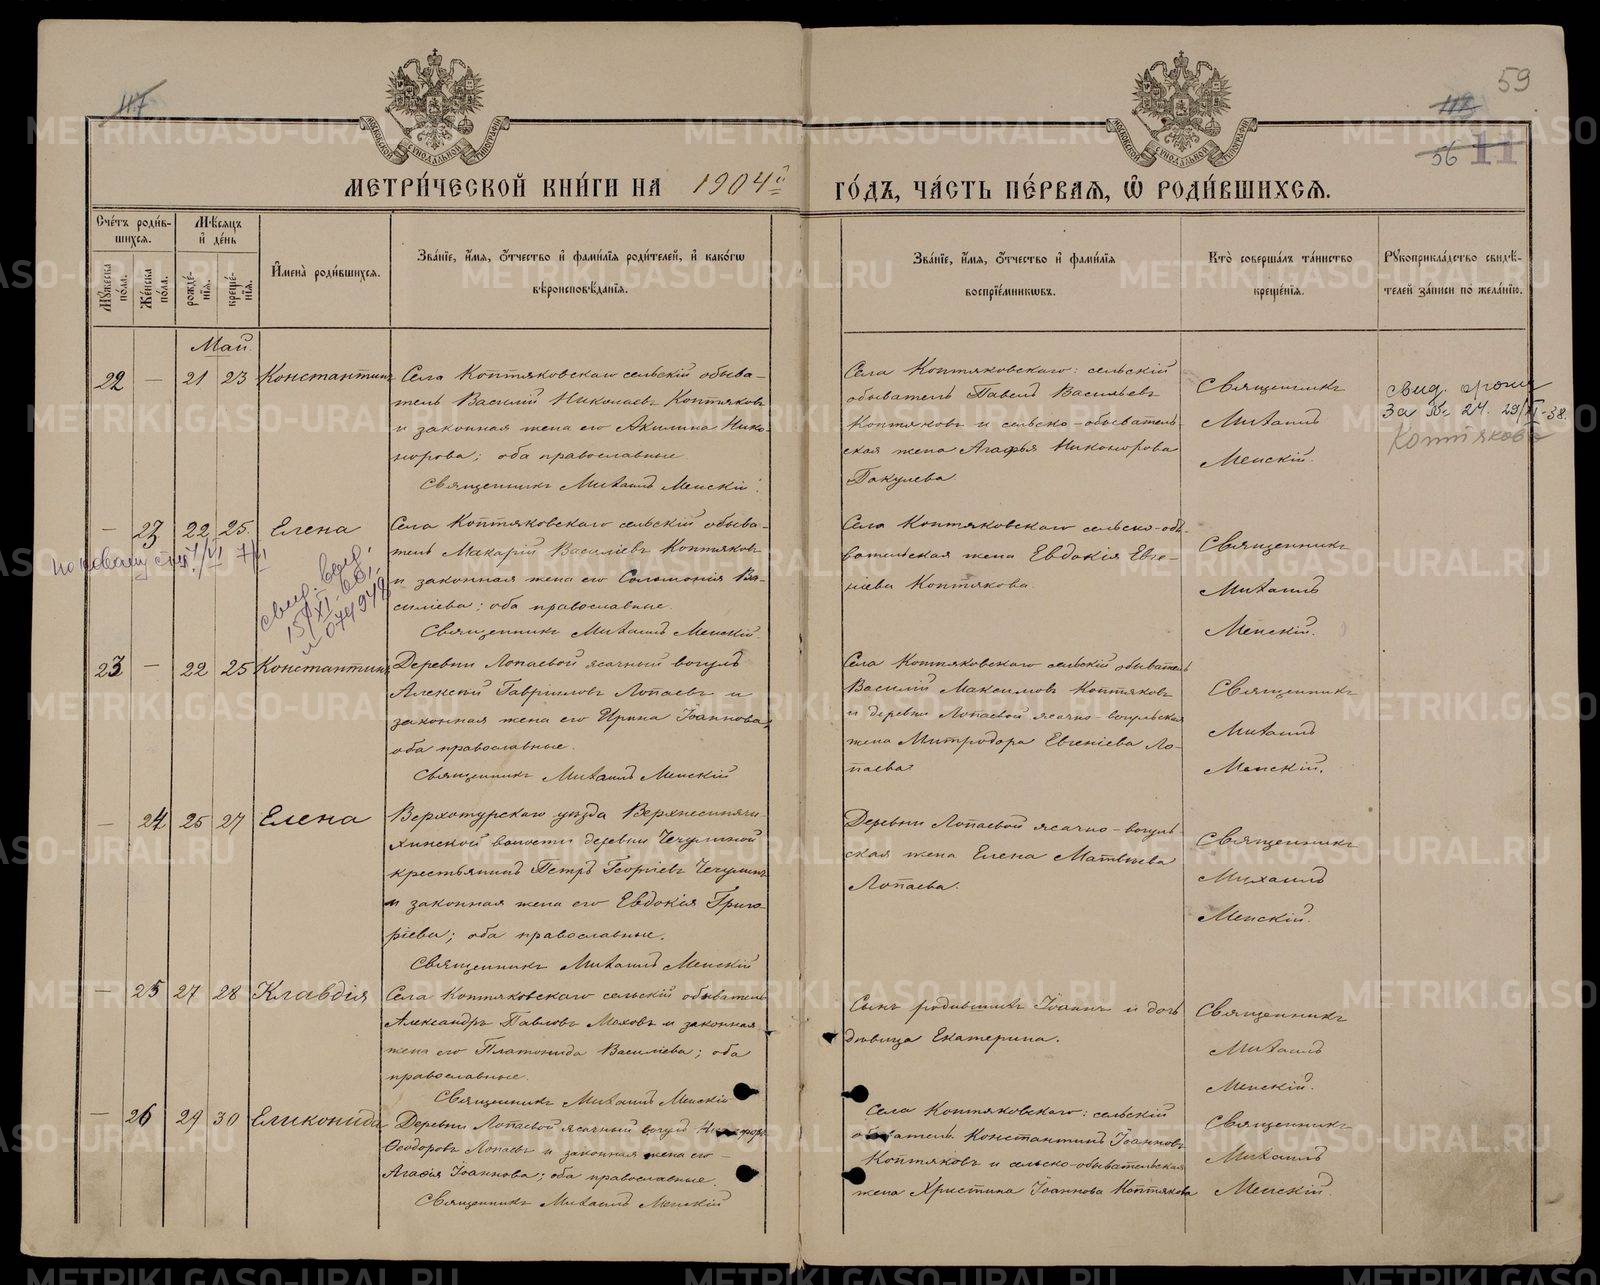 59
56 11
МОСКОВСКОЙ СУНОДАЛЬНОЙ ТИПОГРАФІИ
МОСКОВСКОЙ СУНОДАЛЬНОЙ ТИПОГРАФІИ
МЕТРИ́ЧЕСКОЙ КНИ́ГИ НА 1904й ГО́ДЪ, ЧА́СТЬ ПЕ́РВАѦ, Ѡ РОДИ́ВШИХСѦ.
Сче́тъ роди́вшихсѧ.
Мꙋжеска по́ла.
Же́нска по́ла.
Мѣ́сѧцъ и҆ де́нь
рожде́нїѧ.
креще́нїѧ.
И҆мена̀ роди́вшихсѧ.
Зва́нїе, и҆́мѧ, ѻ҆́тчество и҆ фами́лїѧ роди́телей, и҆ како́гѡ
вѣроисповѣ́данїѧ.
Зва́нїе, и҆́мѧ, ѻ҆́тчество и҆ фами́лїѧ
воспрїе́мникѡвъ.
Кто̀ соверша́лъ та́инство
креще́нїѧ.
Рꙋкоприкла́дство свидѣ́-
телей за́писи по жела́нїю.
Май.
22 — 21 23 Константинъ
Села Коптяковскаго сельскій обыва-
тель Василій Николаевъ Коптяковъ
и законная жена его Акилина Нико-
норова; оба православные.
Священникъ Михаилъ Менскій.
Села Коптяковскаго: сельскій
обыватель Павелъ Васильевъ
Коптяковъ и сельско-обыватель-
ская жена Агафья Никонорова
Бакулева.
Священникъ
Михаилъ
Менскій.
свид.
за № 24. 29/XI-38.
Коптякова
— 23 22 25 Елена
по новому стил 4/VI 7/VI
свид. выд.
15/XI.60г.
074948
Села Коптяковскаго сельскій обыва-
тель Макарій Василіевъ Коптяковъ
и законная жена его Соломонія Ва-
силіева; оба православные.
Священникъ Михаилъ Менскій.
Села Коптяковскаго сельско-обы-
вательская жена Евдокія Евге-
ніева Коптякова.
Священникъ
Михаилъ
Менскій.
23 — 22 25 Константинъ
Деревни Лопаевой ясачный вогулъ
Алексѣй Гавріиловъ Лопаевъ и
законная жена его Ирина Іоаннова,
оба православные.
Священникъ Михаилъ Менскій
Села Коптяковскаго сельскій обыватель
Василій Максимовъ Коптяковъ
и деревни Лопаевой ясачно-вогульская
жена Митродора Евгеніева Ло-
паева
Священникъ
Михаилъ
Менскій.
— 24 25 27 Елена
Верхотурскаго уѣзда
волости деревни Чечулиной
крестьянинъ Петръ Георгіевъ Чечулинъ
и законная жена его Евдокія Григо-
ріева; оба православные.
Священникъ Михаилъ Менскій
Деревни Лопаевой ясачно-вогуль-
ская жена Елена Матвѣева
Лопаева.
Священникъ
Михаилъ
Менскій.
— 25 27 28 Клавдія
Села Коптяковскаго сельскій обыватель
Александръ Павловъ Моховъ и законная
жена его Платонида Василіева; оба
православные.
Священникъ Михаилъ Менскій
Сынъ родившихъ Іоаннъ и дочь
дѣвица Екатерина.
Священникъ
Михаилъ
Менскій.
— 26 29 30 Еликонида
Деревни Лопаевой ясачный вогулъ
Ѳеодоровъ Лопаевъ и законная жена его -
Агафія Іоаннова; оба православные.
Священникъ Михаилъ Менскій
Села Коптяковскаго: сельскій
обыватель Константинъ Іоанновъ
Коптяковъ и сельско-обывательская
жена Христина Іоаннова Коптякова
Священникъ
Михаилъ
Менскій.
METRIKI.GASO-URAL.RU